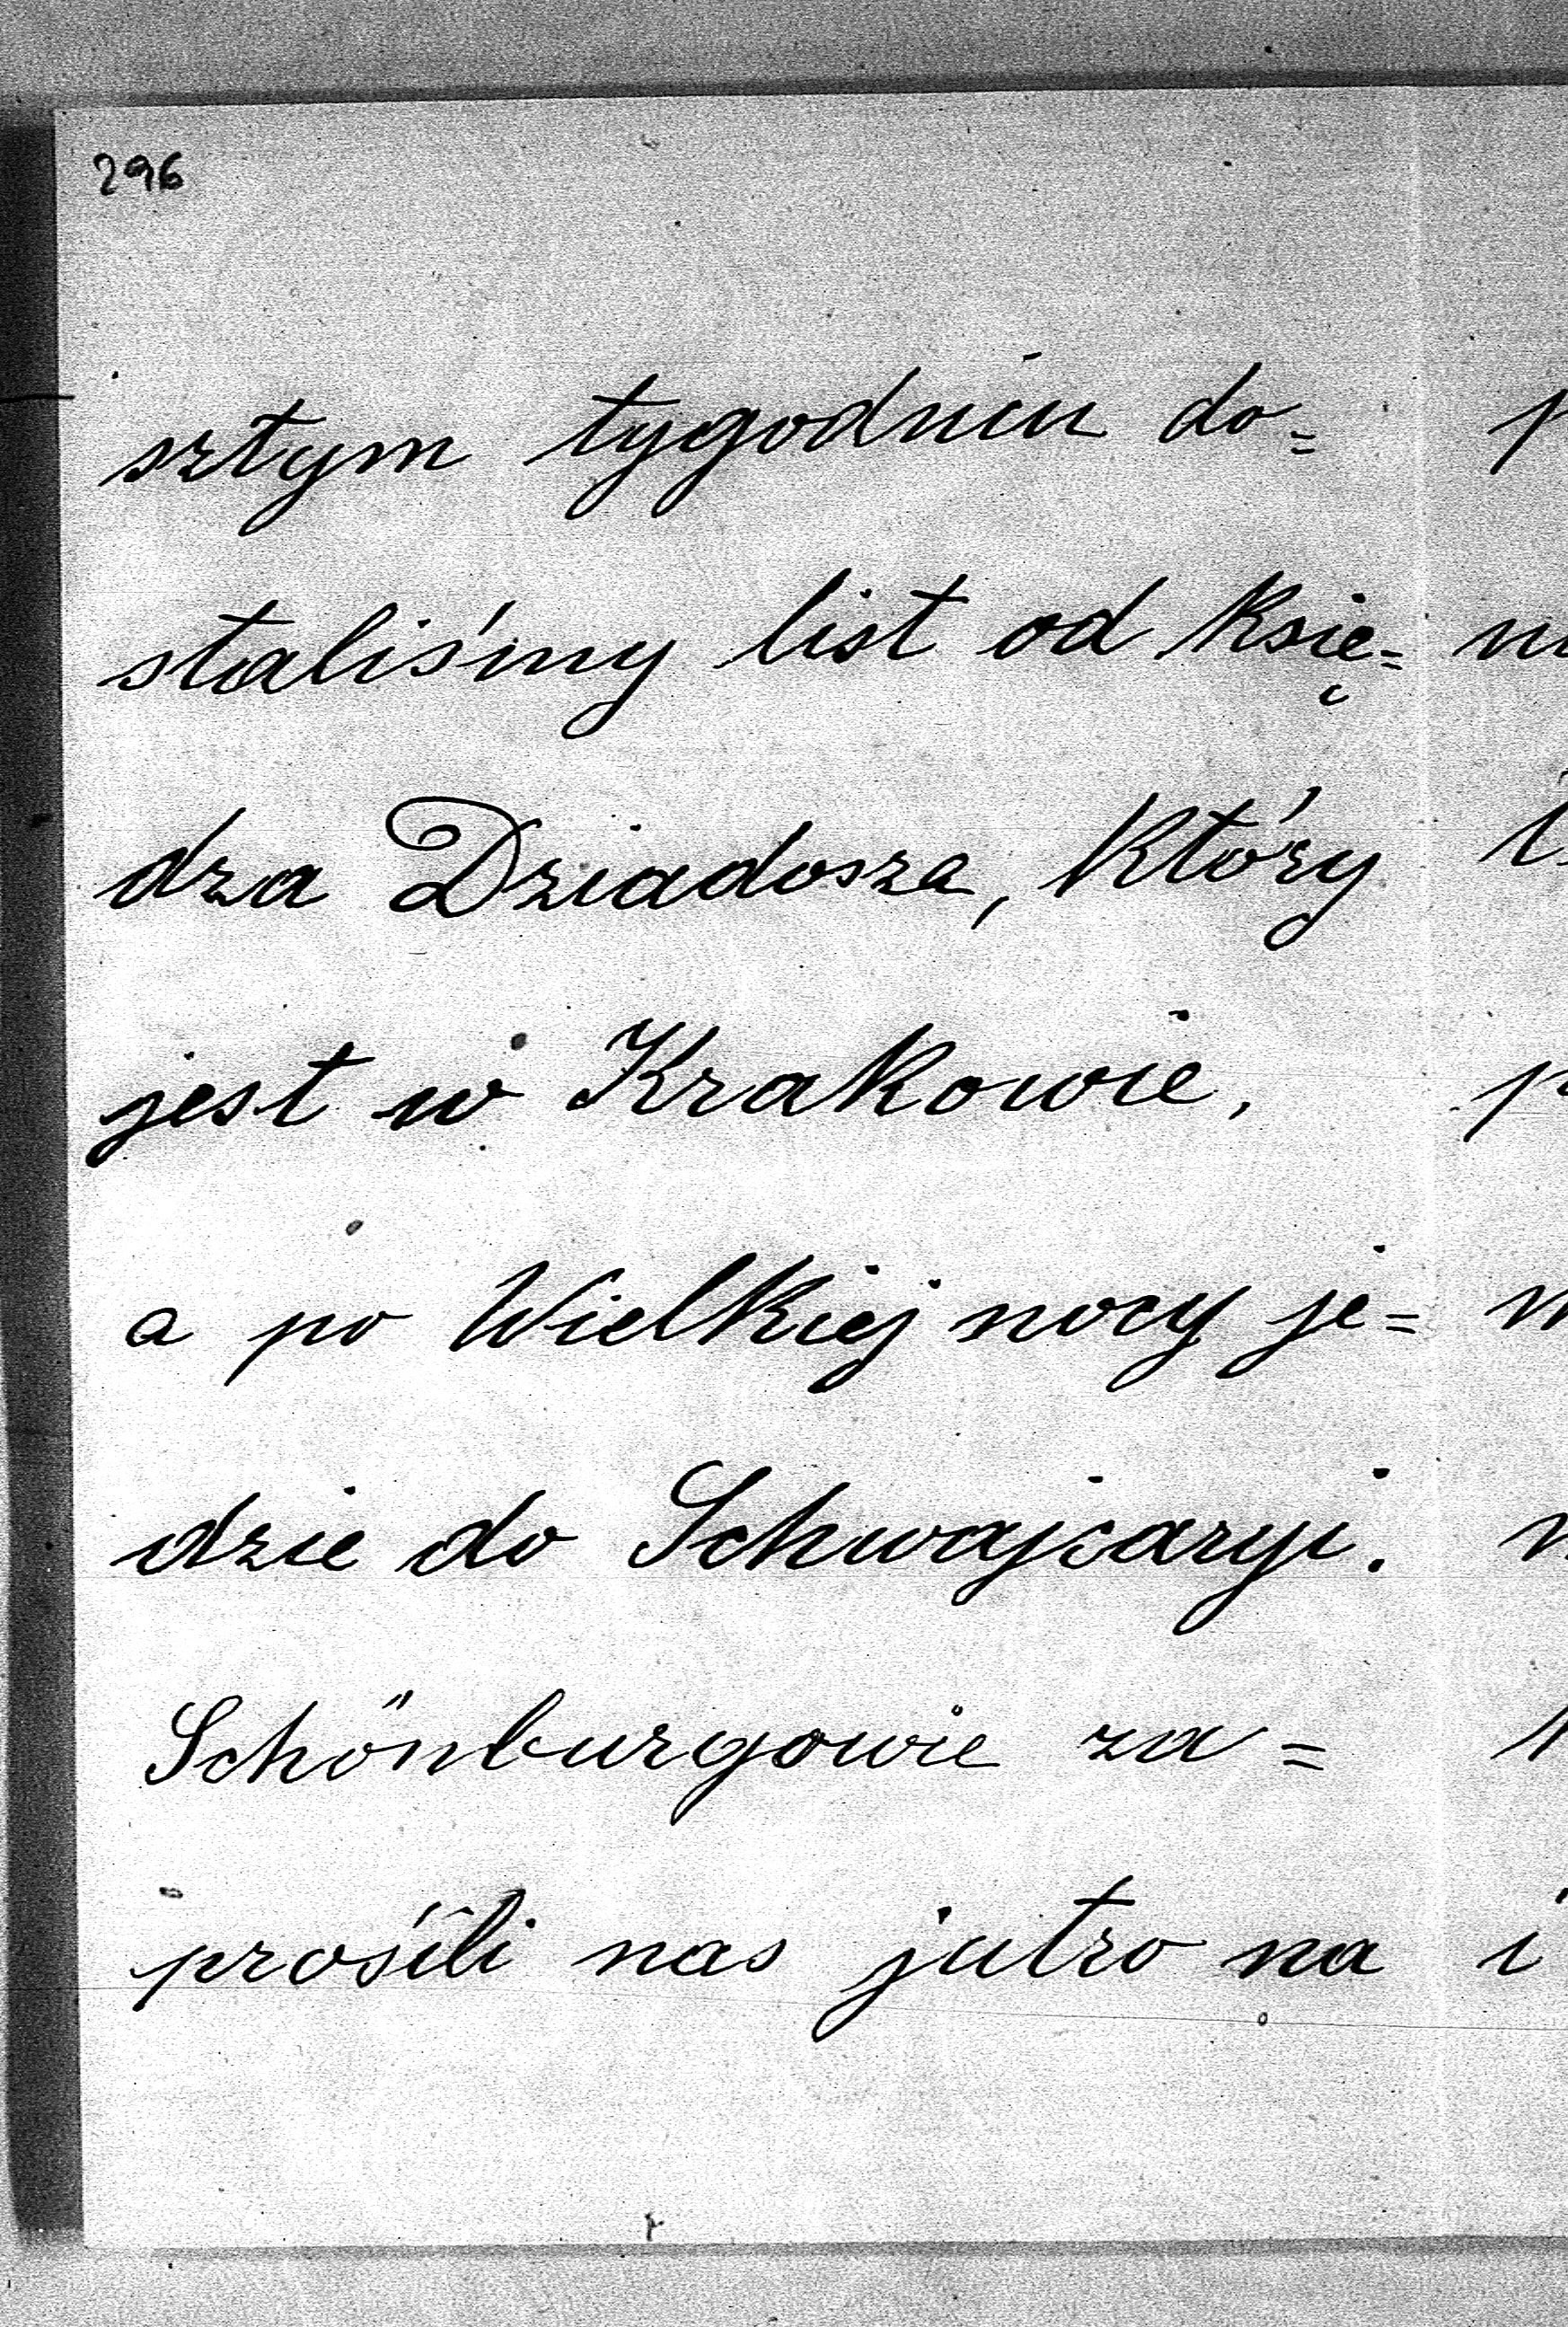 296
sztym tygodniu do=
staliśmy list od Księ=
dza Dziadosza, który
jest w Krakowie,
a po Wielkiej nocy je=
dzie do Schwajcaryi.
Schönburgowie za=
prosíli nas jutro na